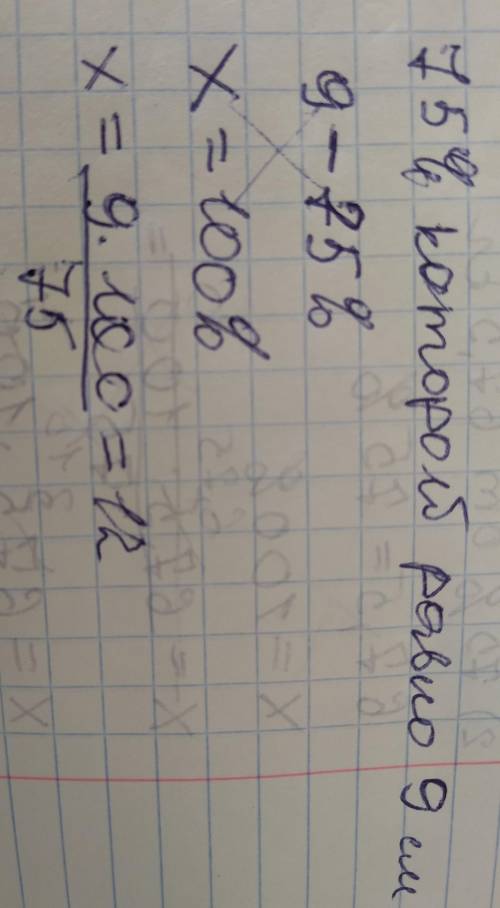 75% которой равно 9 см
9 - 75%
x = 100%
x = 9 · 100 / 75 = 12